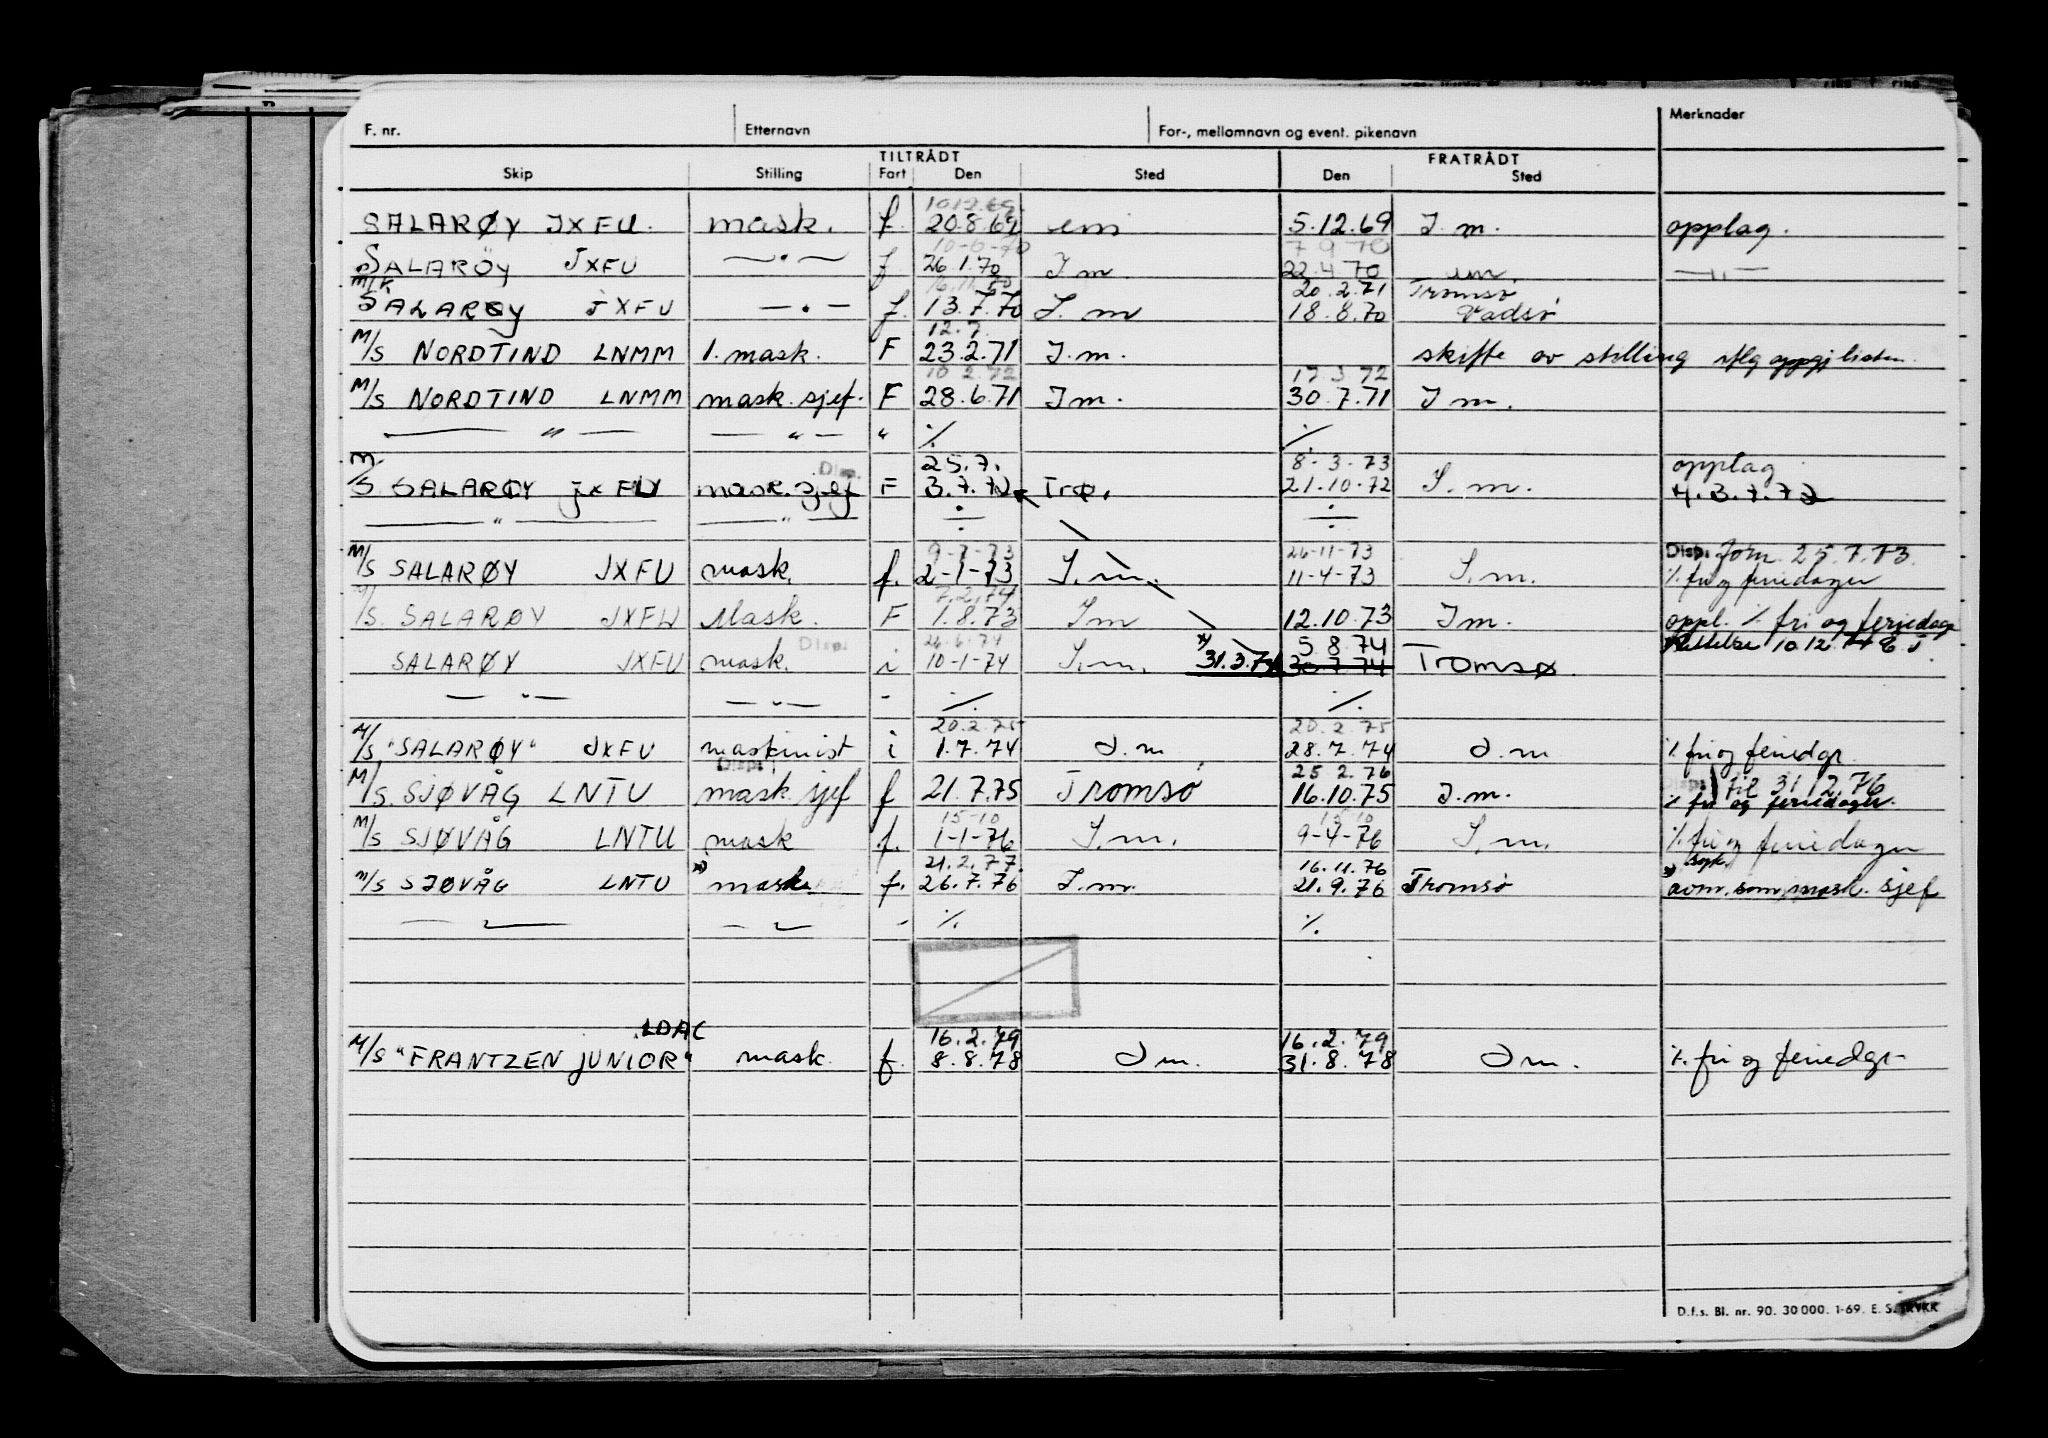 F. nr. Etternavn For-, mellomnavn og event. pikenavn Merknader
TILTRÅDT FRATRÅDT
Skip Stilling Fart Den Sted Den Sted
1012.69.
SALARØY JXFU. mask. f. 20.8.69 5.12.69 J.m. opplag.
10-6-70 7 9 70
SALARØY JXFU —·— f 26.1.70 J m. 22.4.70 um. —"—
M/K 16.11.70 20.2.71 Tromsø
SALARØY JXFU —·— f. 13.7.70 J. m 18.8.70 Vadsø
12.7.
M/S NORDTIND LNMM 1. mask. F 23.2.71 J.m. skifte av stilling iflg oppgj listen.
10 2.72 17 3 72
M/S NORDTIND LNMM mask. sjef. F 28.6.71 J m. 30.7.71 J m.
— " — — " — " ./. ./.
Disp. 25.7. 8-3-73 opplag
M/S SALARØY JXFU mask. sjef F 3.7.72 Trø. 21.10.72 J.m. 4.3.7.72
— " — — " — ÷ ÷
9-7-73 26-11-73 Disp. forn 25.7.73.
M/S SALARØY JXFU mask. f. 2-1-73 J.m. 11-4-73 J.m. ./. fri og feriedager
7.2.74
M/S. SALARØY JXFU Mask. F 1.8.73 J m 12.10.73 J m. oppl. ./. fri og feriedage
Disp. 26.6.74 5.8.74 Rettelse 10.12.74
SALARØY JXFU mask. i 10-1-74 J.m. *) 31.3.74 30.7.74 Tromsø
— " — — " — - ./. ./.
20.2.75 20.2.75
M/S "SALARØY" JXFU maskinist i 1.7.74 J.m 28.7.74 J.m ./. fri og feriedgr.
Disp. 25 2.76 Disp. til 31 2.76
M/S. SJØVÅG LNTU mask sjef f 21.7.75 Tromsø 16.10.75 J.m. ./. fri og feriedager.
15-10 15 10
M/S SJØVÅG LNTU mask f. 1-1-76 J.m. 9-4-76 J.m. ./. fri og feriedager
21.2.77. 16.11.76 syk.
M/S SJØVÅG LNTU *) mask. f. 26.7.76 J.m. 21.9.76 Tromsø *) avm. som mask. sjef
— " — — " — - ./. ./.
LDAC 16.2.79 16.2.79
M/S "FRANTZEN JUNIOR" mask. f. 8.8.78 J m. 31.8.78 J m. ./. fri og feriedgr
D.f.s. Bl. nr. 90. 30 000. 1-69. E. S. TRYKK